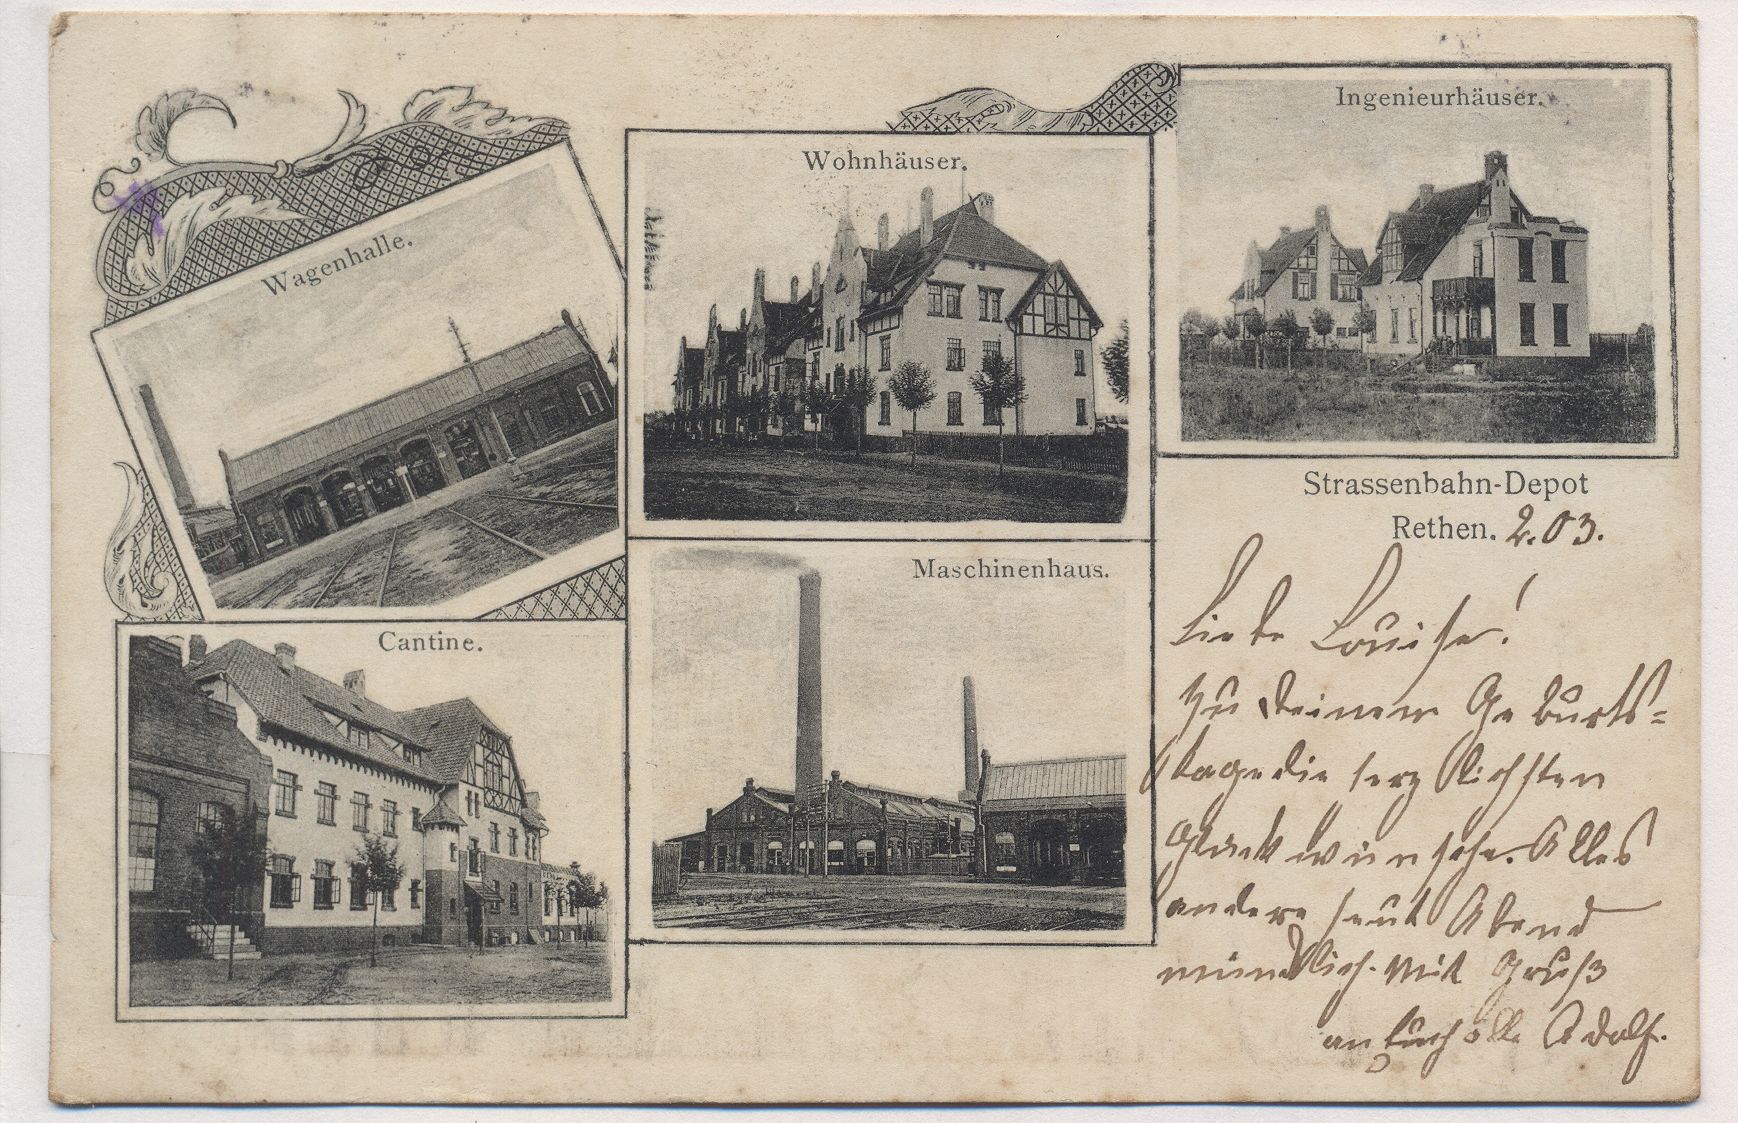 Wagenhalle.
Wohnhäuser.
Ingenieurhäuser.
Cantine.
Maschinenhaus.
Strassenbahn-Depot
Rethen. 2.03.
Liebe Louise!
Zu deinem Geburts=
tage die herzlichsten
Glückwünsche. Alles
andere heut Abend
mündlich. Mit Gruß
an Euch alle Adolf.